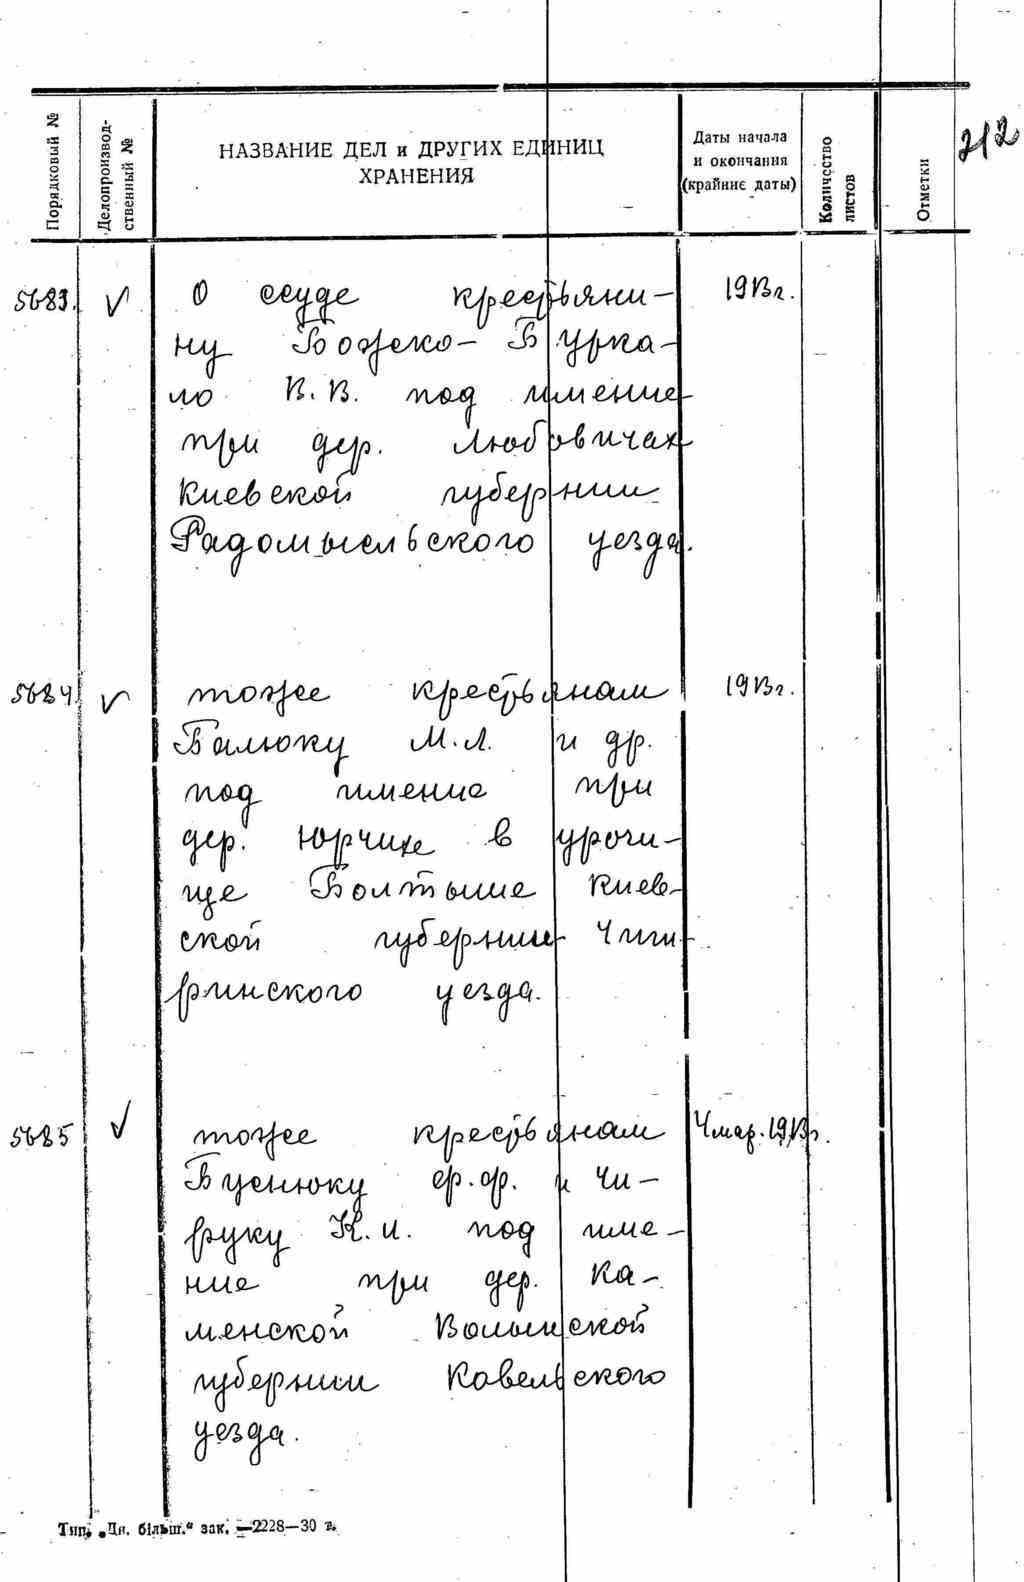 Порядковый №
Делопроизвод-
ственный №
НАЗВАНИЕ ДЕЛ и ДРУГИХ ЕДИНИЦ
ХРАНЕНИЯ
Даты начала
и окончания
(крайние даты)
Количество
листов
Отметки
212
5683. V О ссуде крестьяни- 1913г.
ну Божско-Буркa-
ло В.В. под имение
при дер. Любовичах
Киевской губернии
Радомысльского уезда.
5684. V тоже крестьянам 1913г.
Балюку М.Л. и др.
под имение при
дер. Юрчихе в урочи-
ще Болтыше Киев-
ской губернии Чиги-
ринского уезда.
5685 V тоже крестьянам 4 мар. 1913г.
Буснюку Ф.Ф. и Чи-
руку К.И. под име-
ние при дер. Ка-
менской Волынской
губернии Ковельского
уезда.
Тип. „Дн. більш.“ зак. —2228—30 т.